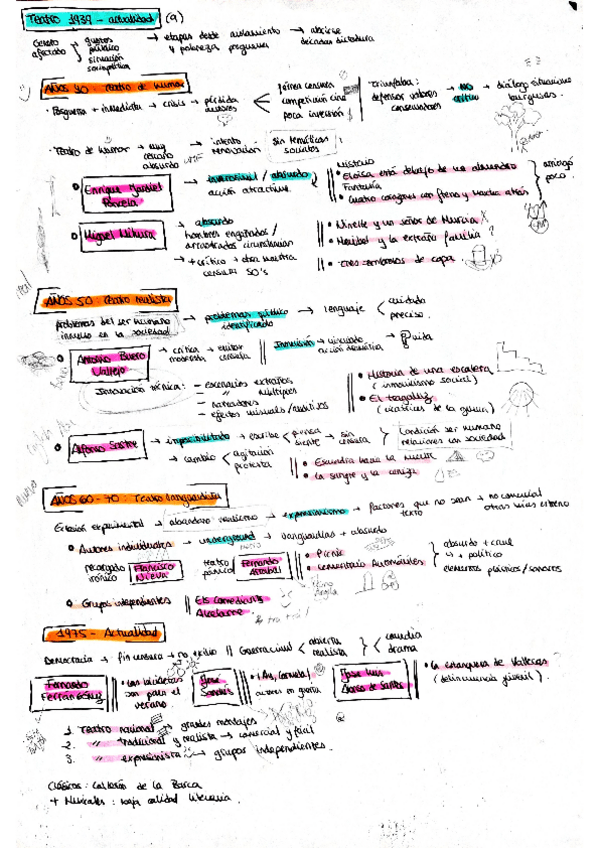 Teatro 1939 - actualidad (9)
Género afectado gustos público situación sociopolítica → etapas desde aislamiento y pobreza posguerra → abrirse décadas dictadura
AÑOS 40: Teatro de humor
· Posguerra + inmediata → crisis → pérdida autores férrea censura competencia cine poca inversión
Triunfaba: defensor valores conservadores → NO crítico → diálogo situaciones burguesas.
· Teatro de humor → muy absurdo → intento renovación sin temáticas sociales
Enrique Jardiel Poncela → inverosímil / absurdo acción atractiva
misterio
• Eloísa está debajo de un almendro
Fantasía
• Cuatro corazones con freno y marcha atrás
arriesgó poco
Miguel Mihura → absurdo
hombres engañados / arrastrados circunstancias
→ + crítico + otra muestra censura 50's
• Ninette y un señor de Murcia
• Maribel y la extraña familia
• Tres sombreros de copa
AÑOS 50: Teatro realista
problemas del ser humano inmerso en la sociedad → problemas público identificado → lenguaje cuidado preciso.
Antonio Buero Vallejo → crítica moderada → evitar censura
Innovación técnica: - escenarios extraños
- " múltiples
- narradores
- efectos visuales / auditivos
• Historia de una escalera (inmovilismo social)
• El tragaluz (víctimas de la guerra)
Alfonso Sastre → imposibilitado → escribe piensa siente → sin censura
Condición ser humano relaciones con sociedad
→ cambio agitación protesta
• Escuadra hacia la muerte
• La sangre y la ceniza
AÑOS 60 - 70: Teatro vanguardista
Eclosión experimental → abandono realismo → expresionismo → factores que no sean texto → no comercial
• Autores individuales → underground → vanguardias + absurdo
Francisco Nieva
teatro pánico Fernando Arrabal
• Picnic
• Cementerio Automóviles
absurdo + cruel
+ político
elementos plásticos / sonoros
• Grupos independientes Els Comediants
1975 - Actualidad
Democracia → fin censura → no exilio || Guerra civil abierta realista comedia drama
Fernando Fernán Gómez
• Las bicicletas son para el verano
José Sanchis
• ¡Ay, Carmela!
José Luis Alonso de Santos
• La estanquera de Vallecas (delincuencia juvenil).
1. Teatro nacional → grandes montajes
2. " tradicional y realista → comercial y fácil
3. " expresionista → grupos independientes.
Clásicos: Calderón de la Barca
+ Musicales: baja calidad literaria.